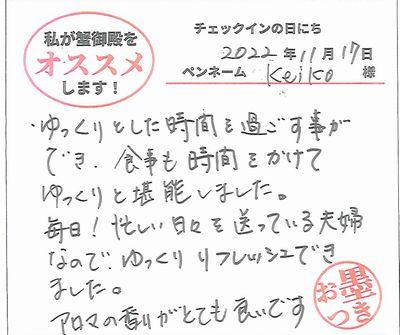 私が蟹御殿を
オススメ
します!
チェックインの日にち
2022年11月17日
ペンネーム Keiko 様
・ゆっくりとした時間を過ごす事が
でき、食事も時間をかけて
ゆっくりと堪能しました。
毎日!忙しい日々を送っている夫婦
なので、ゆっくりリフレッシュでき
ました。
アロマの香りがとても良いです
墨
おつき